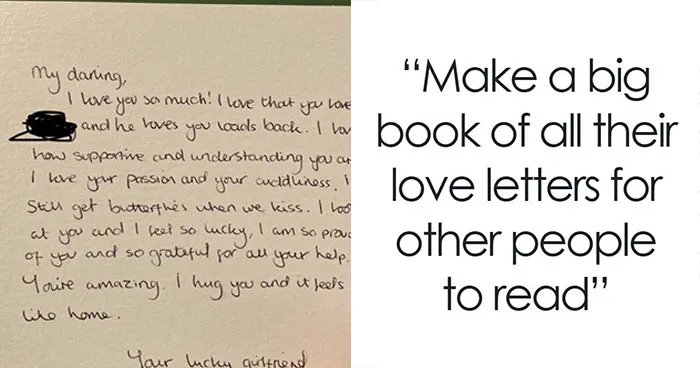 My darling,
I love you so much! I love that you love
and he loves you loads back. I
how supportive and understanding you
I love your passion and your cuddliness. I
Still get butterflies when we kiss. I
at you and I feel so lucky, I am so
of you and so grateful for all your help.
You're amazing. I hug you and it feels
like home.
Your lucky girlfriend
“Make a big
book of all their
love letters for
other people
to read”